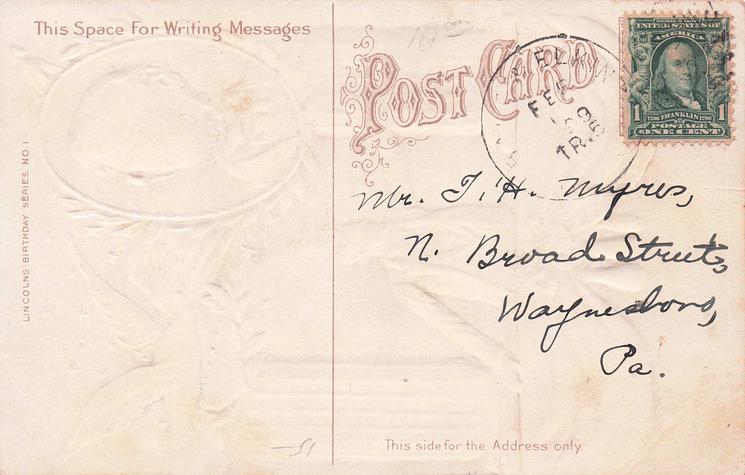 This Space For Writing Messages
POST CARD
FEB
TR.
SERIES 1902
UNITED STATES OF
AMERICA
1 1706 FRANKLIN 1790 1
POSTAGE
ONE CENT
LINCOLNS BIRTHDAY SERIES. NO. 1
Mr. T. H. Myres,
N. Broad Street,
Waynesboro,
Pa.
This side for the Address only.